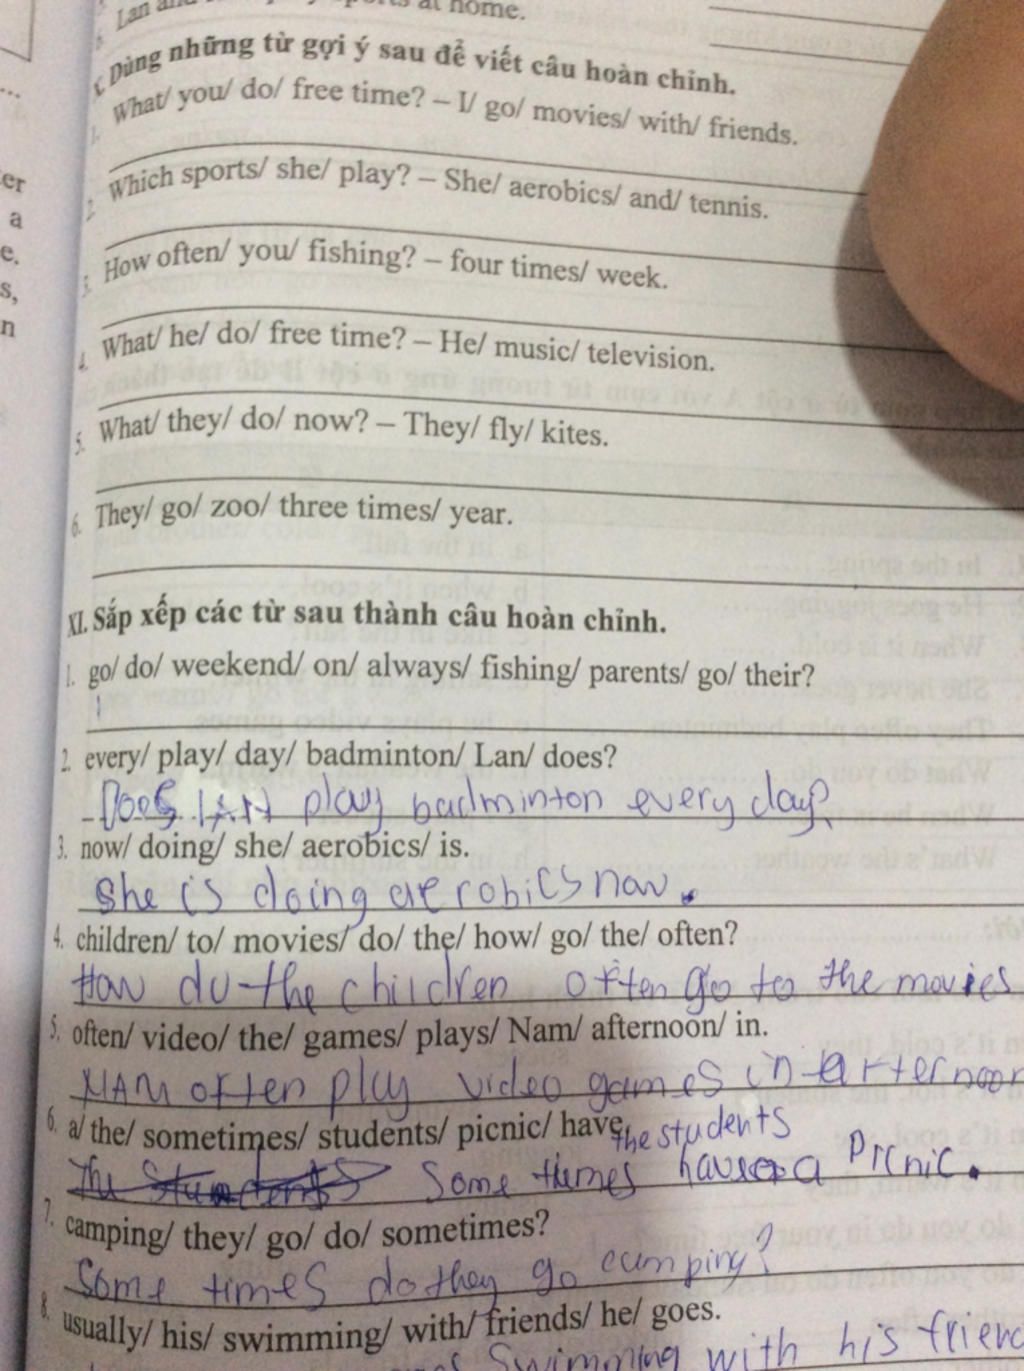 Lan at home.
X. Dùng những từ gợi ý sau để viết câu hoàn chỉnh.
1. What/ you/ do/ free time? – I/ go/ movies/ with/ friends.
er
2. Which sports/ she/ play? – She/ aerobics/ and/ tennis.
a
e.
3. How often/ you/ fishing? – four times/ week.
s,
n
4. What/ he/ do/ free time? – He/ music/ television.
5. What/ they/ do/ now? – They/ fly/ kites.
6. They/ go/ zoo/ three times/ year.
XI. Sắp xếp các từ sau thành câu hoàn chỉnh.
1. go/ do/ weekend/ on/ always/ fishing/ parents/ go/ their?
2. every/ play/ day/ badminton/ Lan/ does?
Does LAN play badminton every day?
3. now/ doing/ she/ aerobics/ is.
She is doing aerobics now.
4. children/ to/ movies/ do/ the/ how/ go/ the/ often?
How do the children often go to the movies
5. often/ video/ the/ games/ plays/ Nam/ afternoon/ in.
NAM often play video games in afternoon
6. a/ the/ sometimes/ students/ picnic/ have.
the students
Some themes have a Picnic.
7. camping/ they/ go/ do/ sometimes?
Some times do they go camping?
8. usually/ his/ swimming/ with/ friends/ he/ goes.
Swimming with his friend